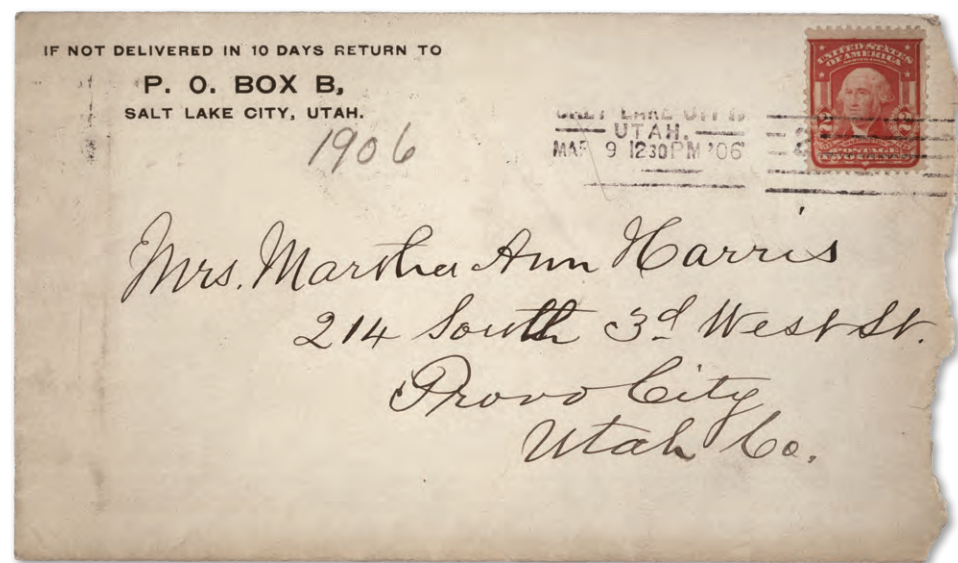 IF NOT DELIVERED IN 10 DAYS RETURN TO
P. O. BOX B,
SALT LAKE CITY, UTAH.
1906
SALT LAKE CITY
UTAH.
MAR 9 1230PM '06
UNITED STATES
OF AMERICA
2 2
Mrs. Martha Ann Harris
214 South 3d West St.
Provo City
Utah Co.